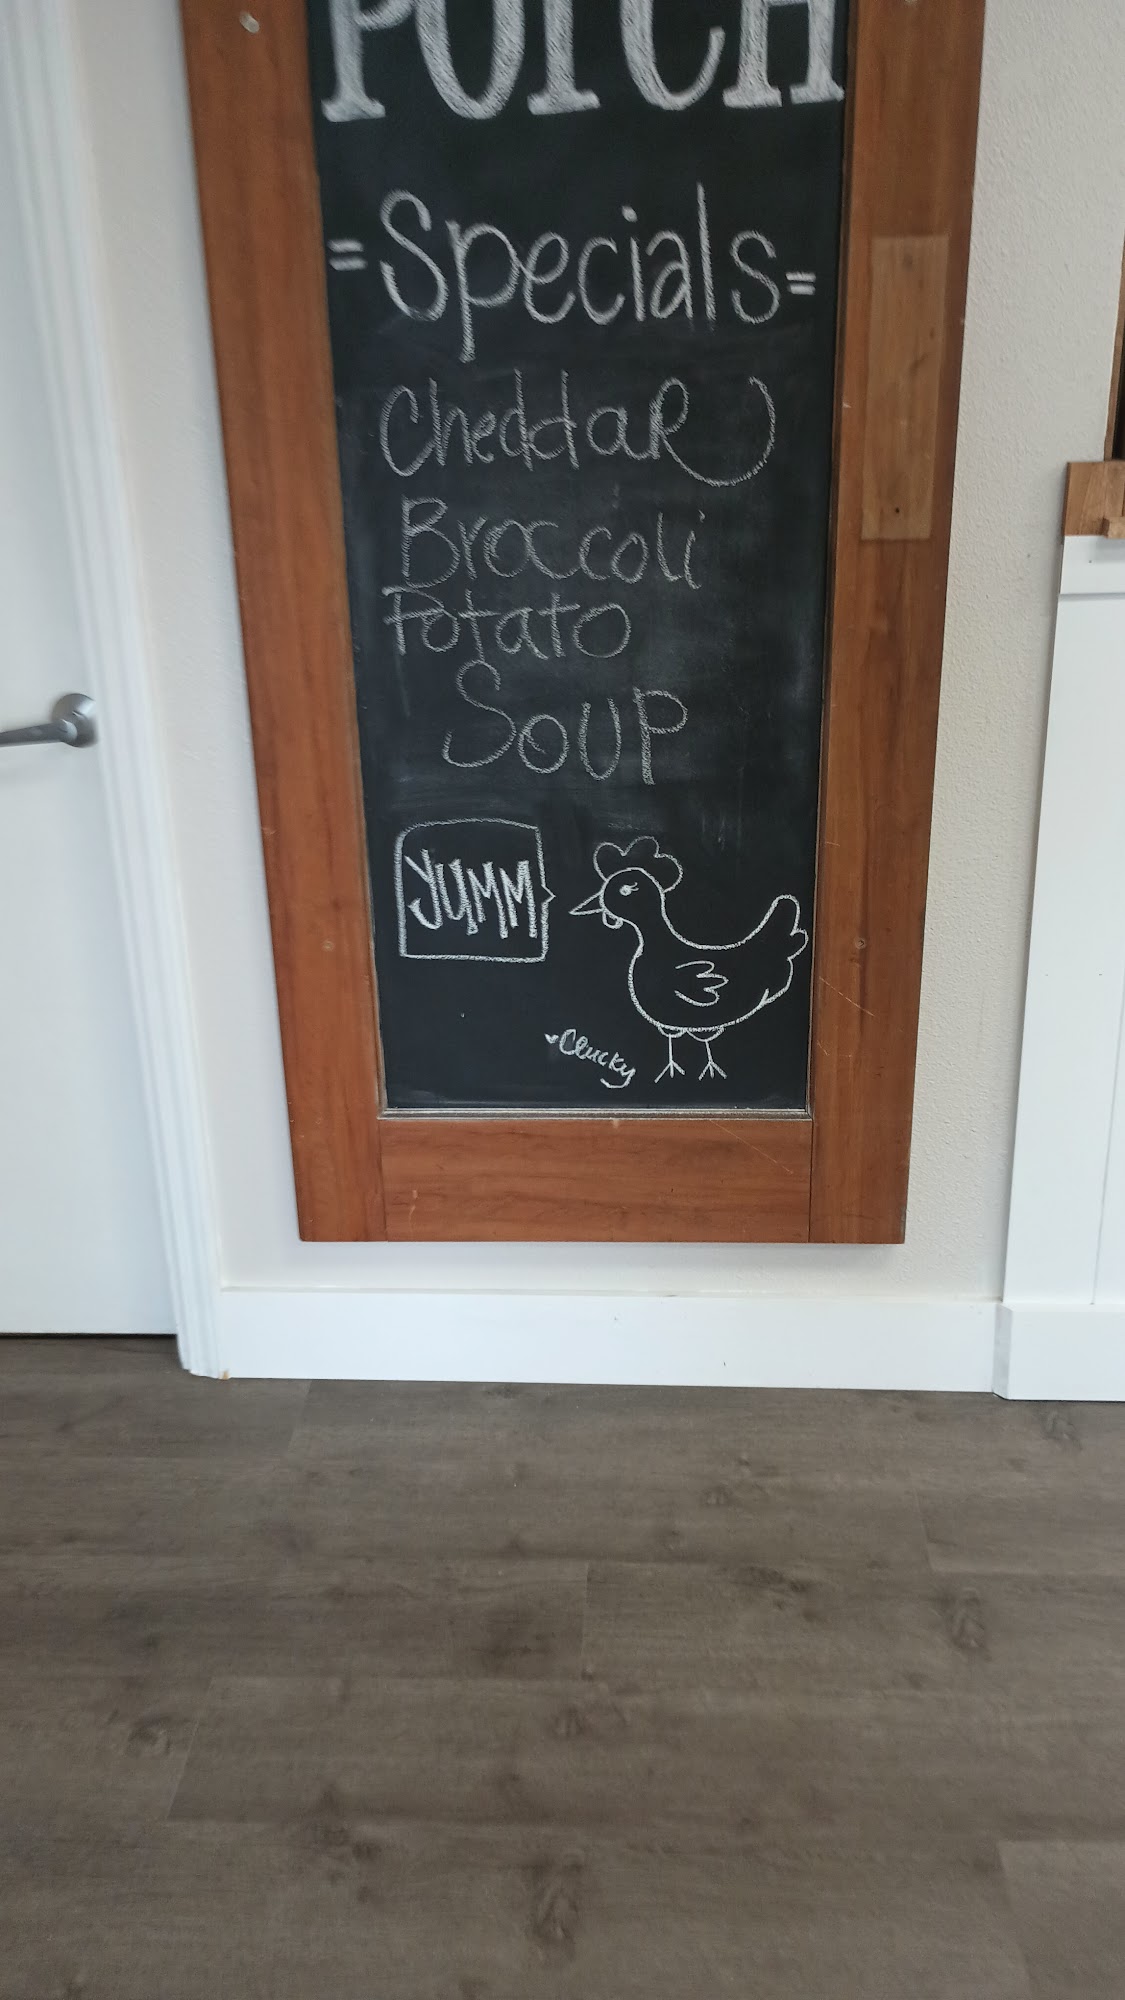 POTCH
=Specials=
CheddaR
Broccoli
Potato
SOUP
YUMM
♥Clucky